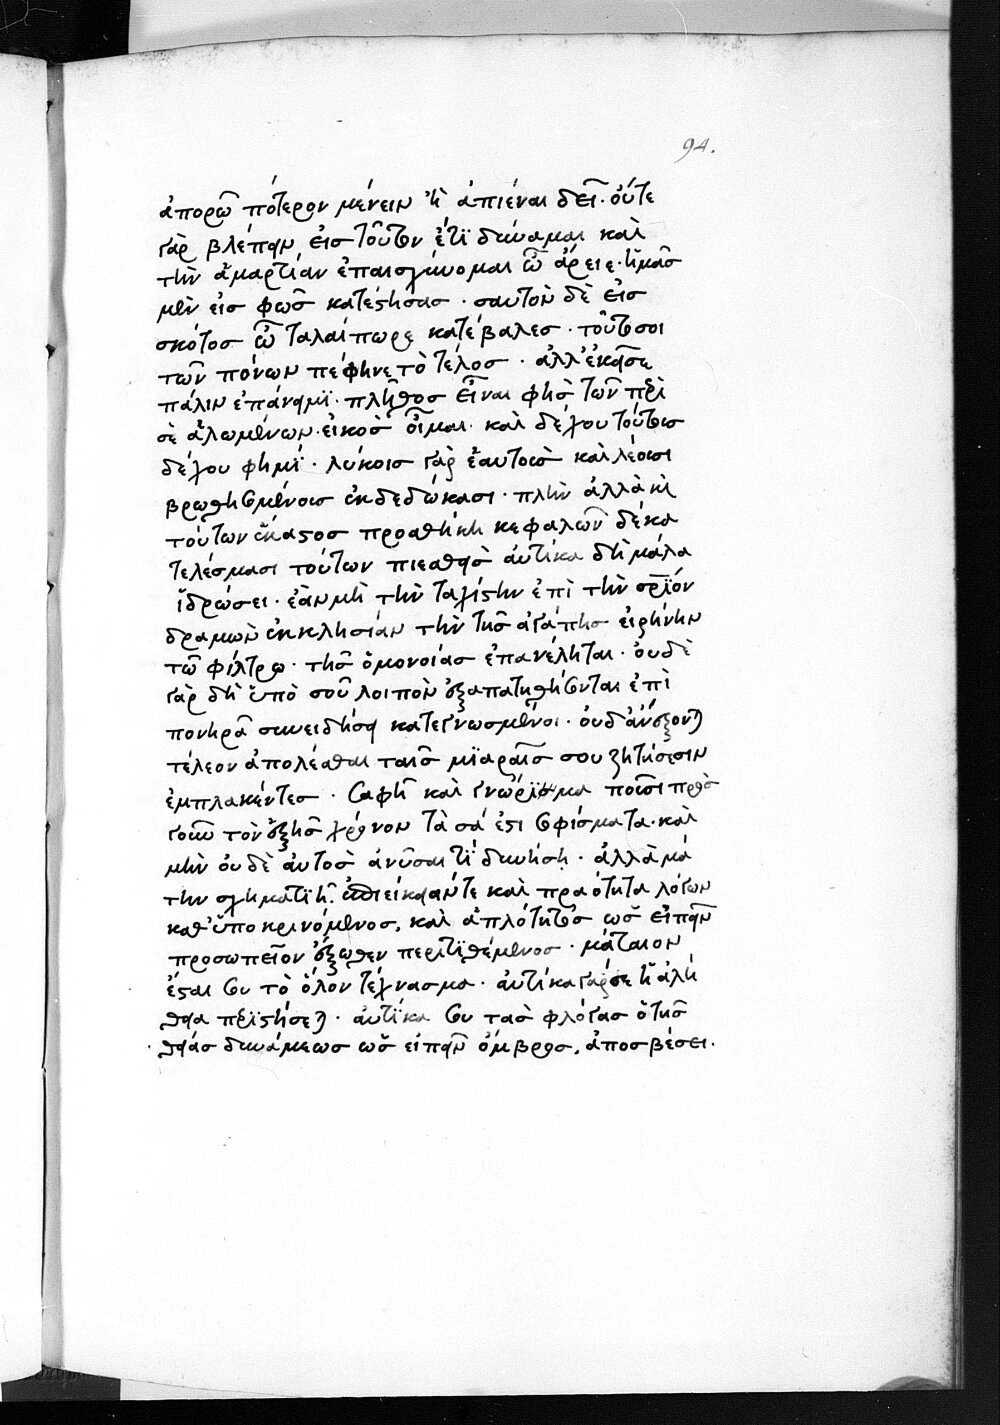 94.
ἀπορῶ πότερον μένειν ἢ ἀπιέναι δεῖ· οὔτε
γὰρ βλέπειν εἰς τοῦτον ἔτι δύναμαι καὶ
τὴν ἁμαρτίαν ἐπαισχύνομαι ὦ ἄρειε· ἡμᾶς
μὲν εἰς φῶς κατέστησας · σαυτὸν δὲ εἰς
σκότος ὦ ταλαίπωρε κατέβαλες · τοῦτό σοι
τῶν πόνων πέφηνε τὸ τέλος · ἀλλ' ἐκεῖσε
πάλιν ἐπάνειμι · πλῆθος εἶναι φησὶ τῶν περὶ
σὲ ἀλωμένων · εἰκὸς οἶμαι · καὶ δέχου τούτοις
δέχου φημί · λύκοις γὰρ ἑαυτοὺς καὶ λέουσι
βρωθησομένους ἐκδεδώκασι · πλὴν ἀλλὰ καὶ
τούτων ἕκαστος προσθήκη κεφαλῶν δέκα
τελέσμασι τούτων πιεσθεὶς αὐτίκα δὴ μάλα
ἱδρώσει · ἐὰν μὴ τὴν ταχίστην ἐπὶ τὴν σωτήριον
δραμὼν ἐκκλησίαν τὴν τῆς ἀγάπης εἰρήνην
τῷ φίλτρῳ · τῆς ὁμονοίας ἐπανέληται · οὐδὲ
γὰρ δὴ ὑπὸ σοῦ λοιπὸν ἐξαπατηθήσονται ἐπὶ
πονηρᾷ συνειδήσει κατεγνωσμένοι · οὐδ' ἀνέξονται
τέλεον ἀπολέσθαι ταῖς μιαραῖς σου ζητήσεσιν
ἐμπλακέντες · σαφῆ καὶ γνώριμα πᾶσι πρὸς
γοῦν τὸν ἑξῆς χρόνον τὰ σά ἐστι σοφίσματα · καὶ
μὴν οὐδὲ αὐτὸς ἀνῦσαί τι δυνήσῃ · ἀλλὰ μά
την σχηματίζῃ · ἐπιείκειάν τε καὶ πραότητα λόγων
καθ' ὑποκρινόμενος, καὶ ἁπλότητος ὡς εἰπεῖν
προσωπεῖον ἔξωθεν περιτιθέμενος · μάταιον
ἔσται σου τὸ ὅλον τέχνασμα · αὐτίκα γάρ σε ἡ ἀλή
θεια περιστήσεται · αὐτίκα σου τὰς φλόγας ὁ τῆς
θείας δυνάμεως ὡς εἰπεῖν ὄμβρος, ἀποσβέσει ·